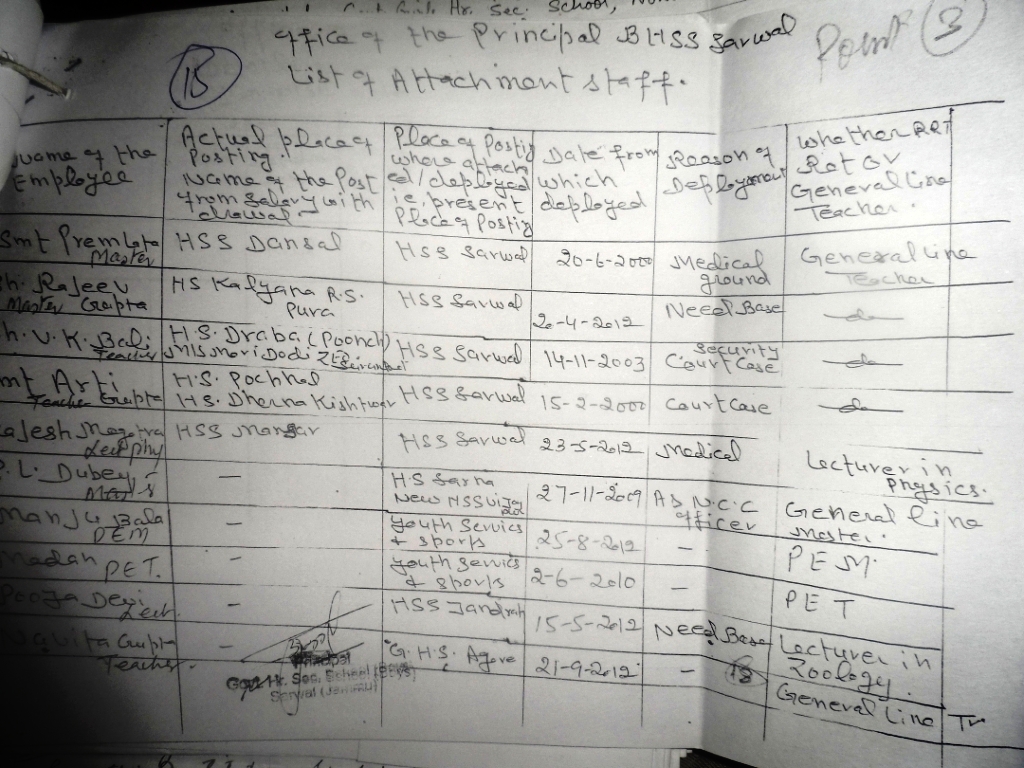 Hr. Sec. School,
Office of the Principal BHSS Sarwal
Point 3
1B
List of Attachment staff.
Name of the Employee
Actual place of Posting. Name of the Post from salary with drawal
Place of Posting where attached/deployed i.e. present Place of Posting
Date from which deployed
Reason of Deployment
Whether RRT Ret or General Line Teacher.
Smt Prem Lata Master HSS Dansal HSS Sarwal 20-6-2000 Medical ground General Line Teacher
Sh. Rajeev Gupta Master HS Kalyana R.S. Pura HSS Sarwal 2-4-2012 Need Base do
h. V.K. Bali Teacher H.S. Draba (Poonch) HSS Sarwal 14-11-2003 Security Court Case do
mt Arti Gupta Teacher H.S. Pochhal H.S. Dherna Kishtwar HSS Sarwal 15-2-2000 Court Case do
Rajesh Magotra Lect phy HSS Mansar HSS Sarwal 23-5-2012 Medical Lecturer in Physics.
P. L. Dubey — HS Sarna New HSS 27-11-2009 As N.C.C officer General line Master.
Manju Bala PEM — Youth Servics & sports 25-8-2012 — PEM
Madan PET. — Youth Servics & sports 2-6-2010 — PET
Pooja Devi Lect. — HSS Jandrah 15-5-2012 Need Base Lecturer in Zoology.
Navita Gupta Teacher. — G.H.S. Agore 21-9-2012 — General Line Tr
Principal
Govt. Hr. Sec. School (Boys)
Sarwal (Jammu)